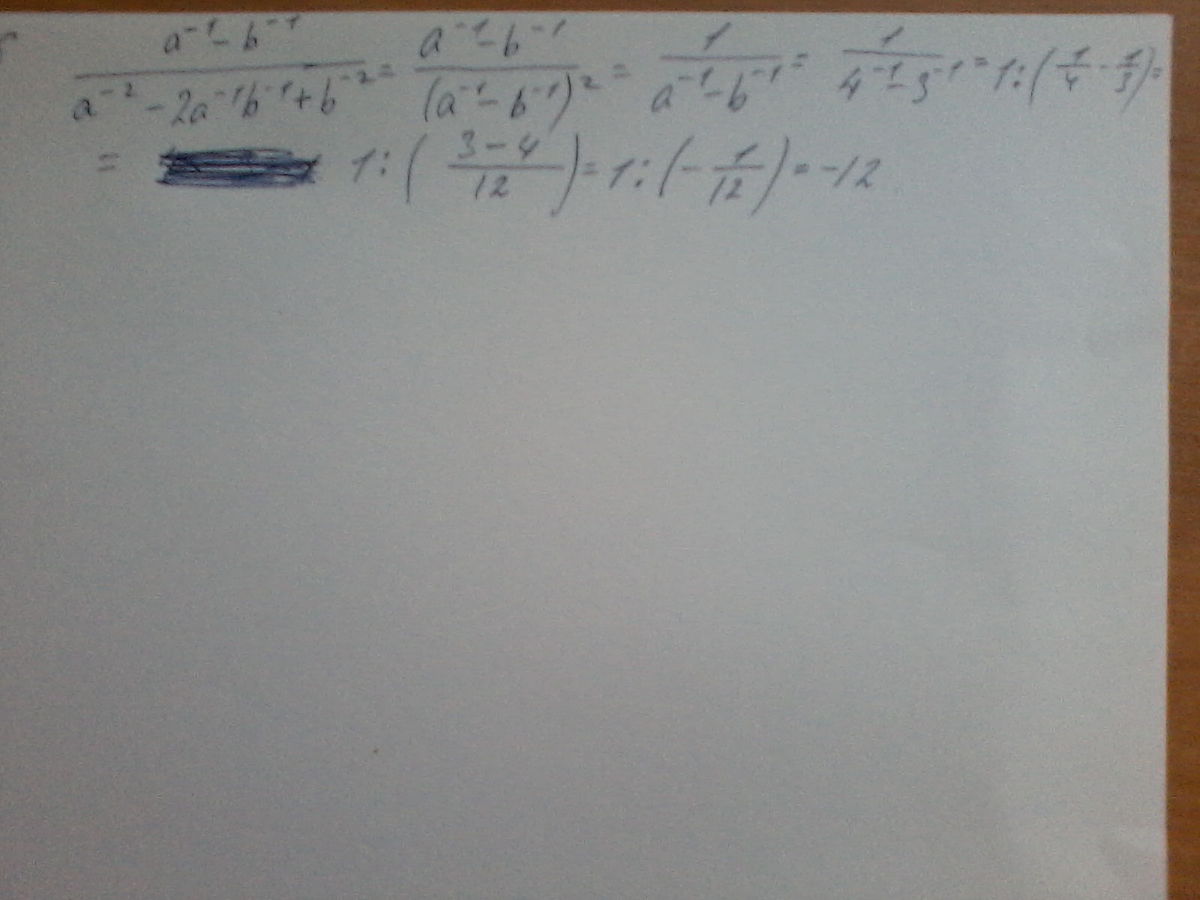 (a⁻¹ - b⁻¹)/(a⁻² - 2a⁻¹b⁻¹ + b⁻²) = (a⁻¹ - b⁻¹)/(a⁻¹ - b⁻¹)² = 1/(a⁻¹ - b⁻¹) = 1/(4⁻¹ - 3⁻¹) = 1:(1/4 - 1/3) =
= 1:((3 - 4)/12) = 1:(-1/12) = -12